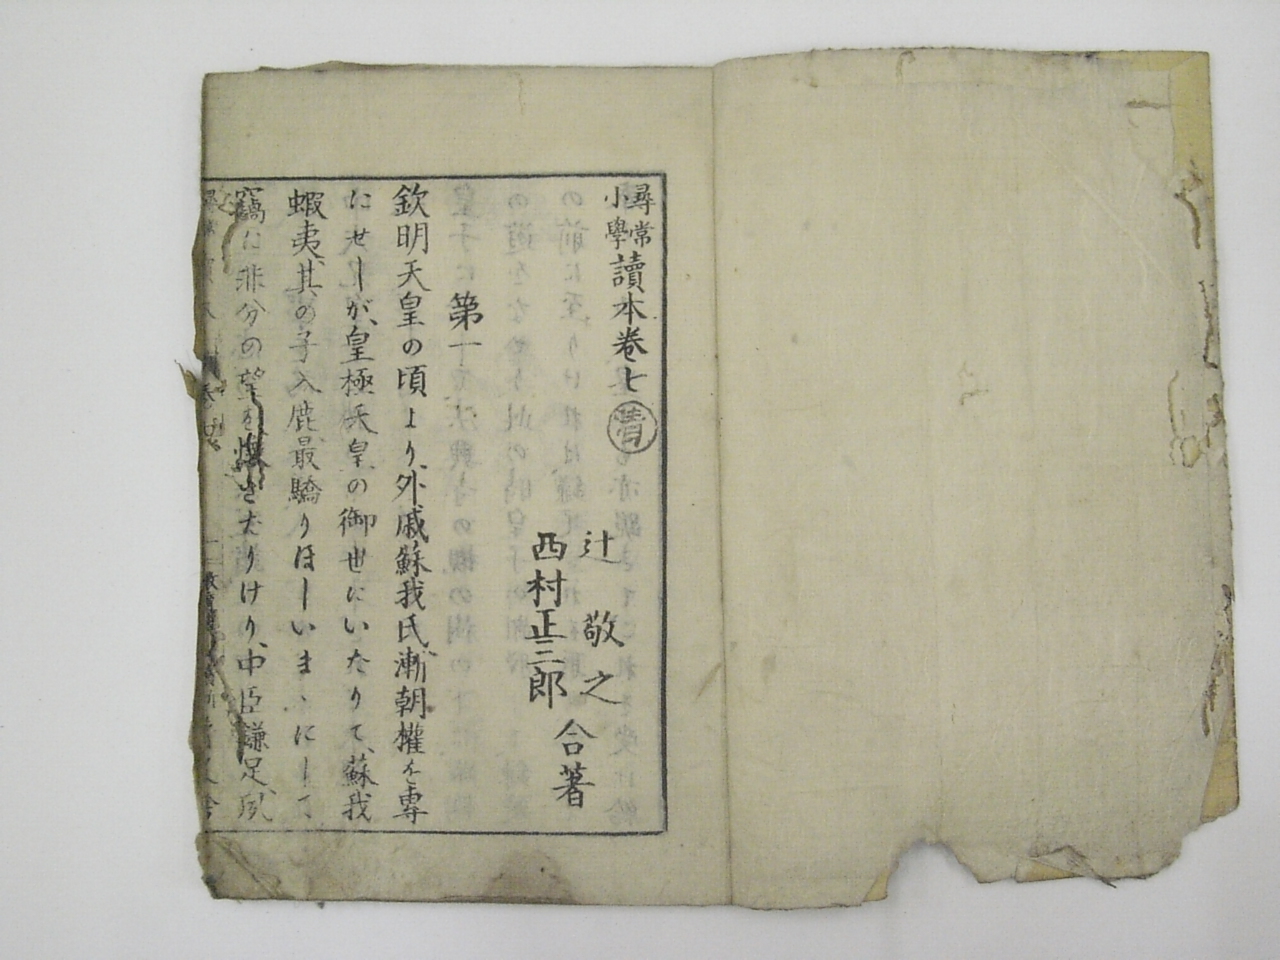 尋常小學讀本卷七
辻敬之
西村正三郎
合著
第一
欽明天皇の頃より、外戚蘇我氏、漸朝權を專
にせしが、皇極天皇の御世にいたりて、蘇我
蝦夷、其の子入鹿最驕りほしいまゝにして
竊に非分の望を懷きたりけり、中臣鎌足、夙